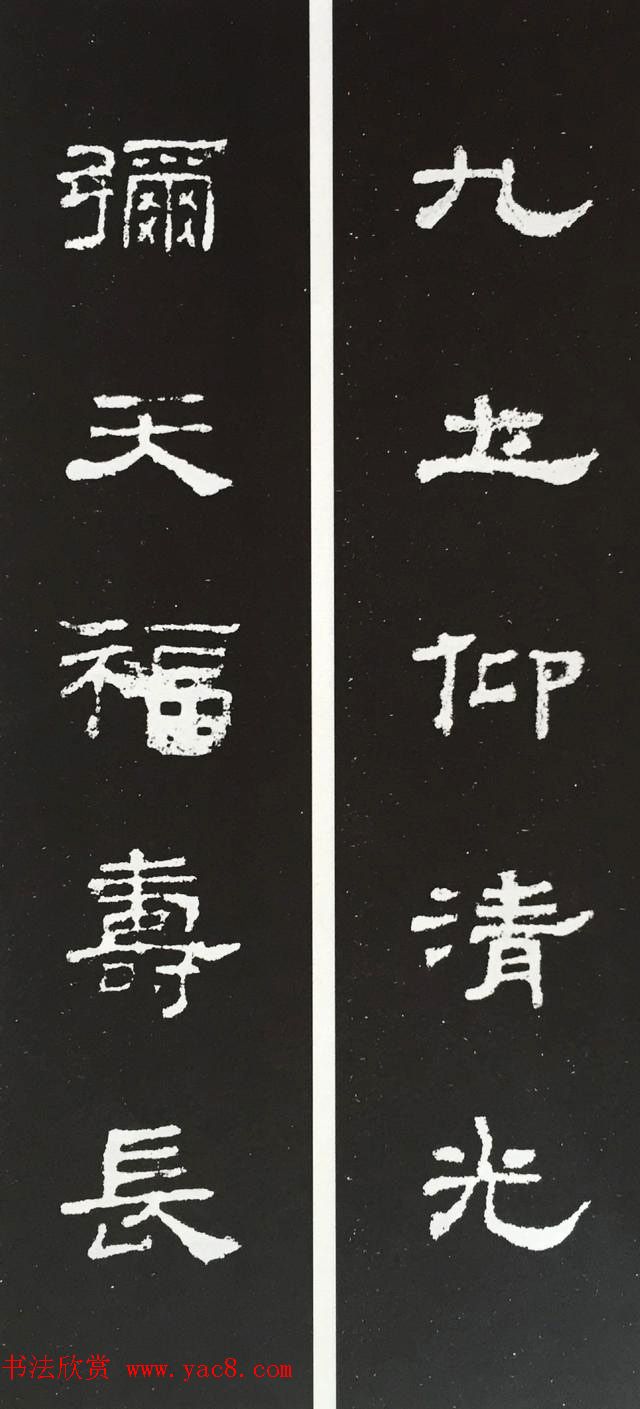 九土仰清光
彌天福壽長
书法欣赏 www.yac8.com